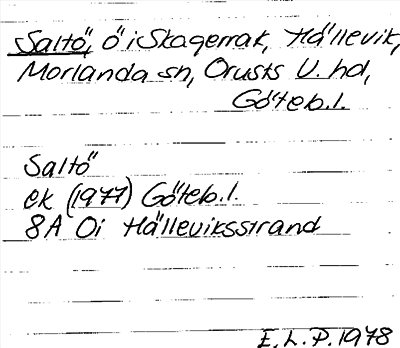 Saltö, ö i Skagerrak, Hällevik,
Morlanda sn, Orusts V. hd,
Göteb. l.
Saltö
ek (1977) Göteb. l.
8A 0i Hälleviksstrand
E. L. P. 1978